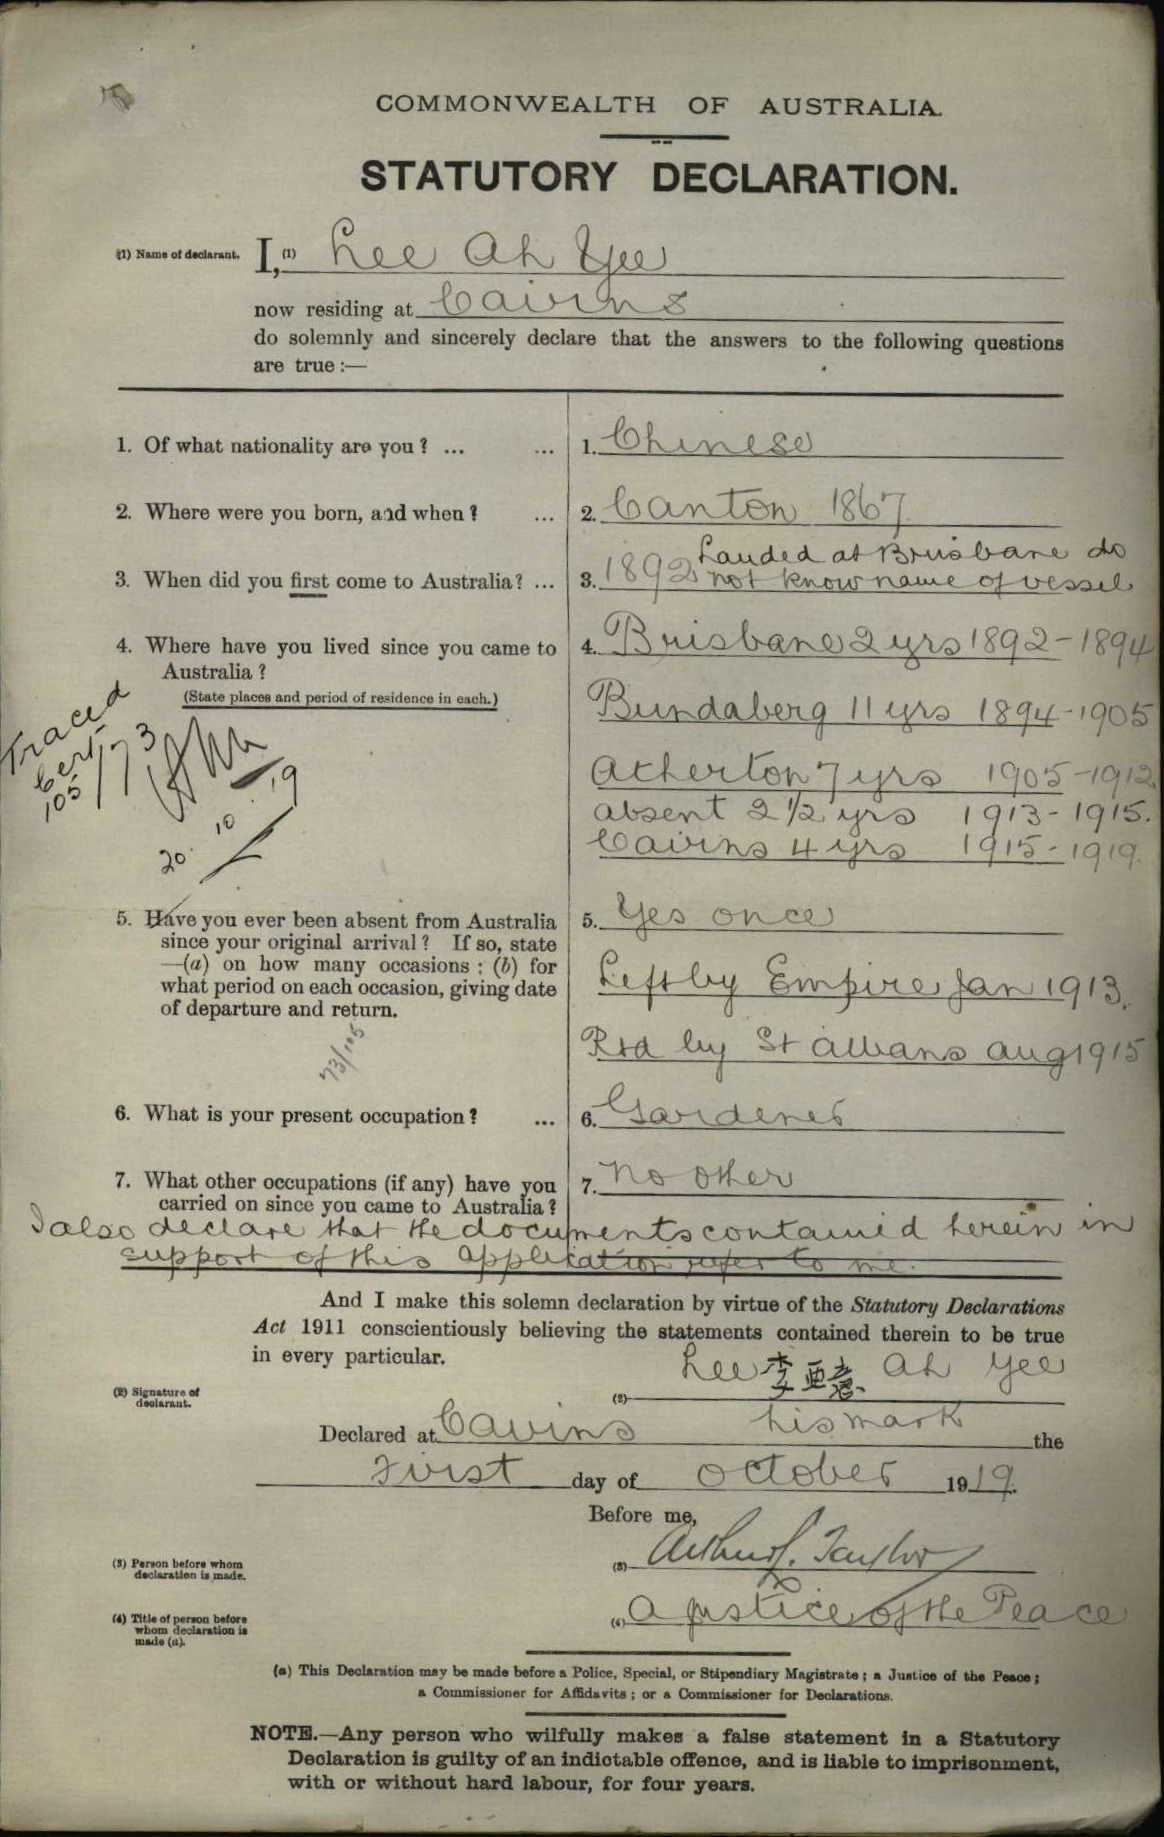 COMMONWEALTH OF AUSTRALIA.
STATUTORY DECLARATION.
(1) Name of declarant. I,(1) Lee Ah Yee
now residing at Cairns
do solemnly and sincerely declare that the answers to the following questions
are true :—
1. Of what nationality are you ? ... ... 1. Chinese
2. Where were you born, and when ? ... 2. Canton 1867
Landed at Brisbane do
3. When did you first come to Australia? ... 3. 1892 not know name of vessel
4. Where have you lived since you came to 4. Brisbane 2 yrs 1892 - 1894
Australia ?
(State places and period of residence in each.)
Bundaberg 11 yrs 1894 - 1905
Atherton 7 yrs 1905 - 1912
absent 2 1/2 yrs 1913 - 1915.
Cairns 4 yrs 1915 - 1919.
Traced
Cert
105/73
20. 10 19
5. Have you ever been absent from Australia 5. Yes once
since your original arrival ? If so, state
—(a) on how many occasions ; (b) for
what period on each occasion, giving date
of departure and return.
Left by Empire Jan 1913.
Rtd by St Albans Aug 1915
73/105
6. What is your present occupation ? ... 6. Gardener
7. What other occupations (if any) have you 7. No other
carried on since you came to Australia ?
I also declare that the documents contained herein in
support of this application refer to me.
And I make this solemn declaration by virtue of the Statutory Declarations
Act 1911 conscientiously believing the statements contained therein to be true
in every particular.
(2) Signature of
declarant.
(2) Lee 李亞意 Ah Yee
his mark
Declared at Cairns the
First day of October 1919.
Before me,
(3) Person before whom
declaration is made.
(3) Arthur J. Taylor
(4) Title of person before
whom declaration is
made (a).
(4) a Justice of the Peace
(a) This Declaration may be made before a Police, Special, or Stipendiary Magistrate ; a Justice of the Peace ;
a Commissioner for Affidavits ; or a Commissioner for Declarations.
NOTE.—Any person who wilfully makes a false statement in a Statutory
Declaration is guilty of an indictable offence, and is liable to imprisonment,
with or without hard labour, for four years.